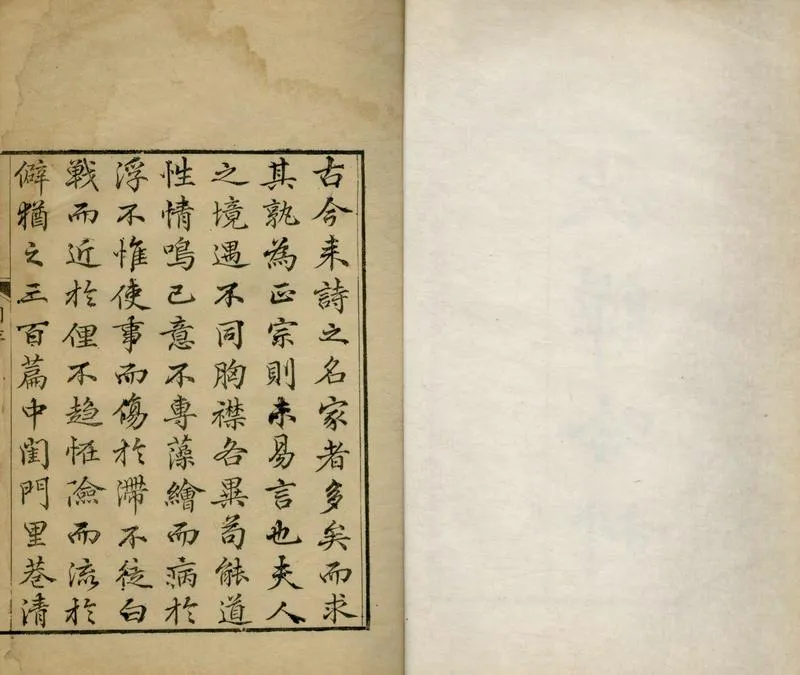 古今来詩之名家者多矣而求
其孰為正宗則未易言也夫人
之境遇不同胸襟各異苟能道
性情鳴己意不專藻繪而病於
浮不惟使事而傷於滯不徒白
戦而近於俚不趋恠險而流於
僻猶之三百篇中閨門里巷清